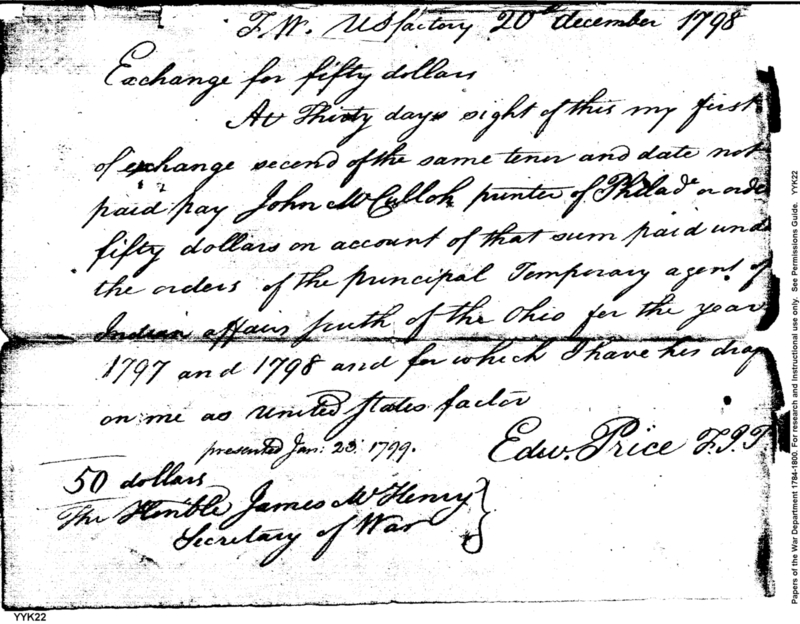 F.W. US factory 20th december 1798
Exchange for fifty dollars
At Thirty days sight of this my first
of exchange second of the same tenor and date not
paid pay John McCulloh printer of Philada or order
fifty dollars on account of that sum paid unde
the orders of the principal Temporary agent of
Indian affairs south of the Ohio for the year
1797 and 1798 and for which I have his draf
on me as United States factor
presented Jan: 23. 1799.
Edw. Price
50 dollars
The Honble James McHenry
Secretary of War
YYK22
Papers of the War Department 1784-1800. For research and instructional use only. See Permissions Guide. YYK22